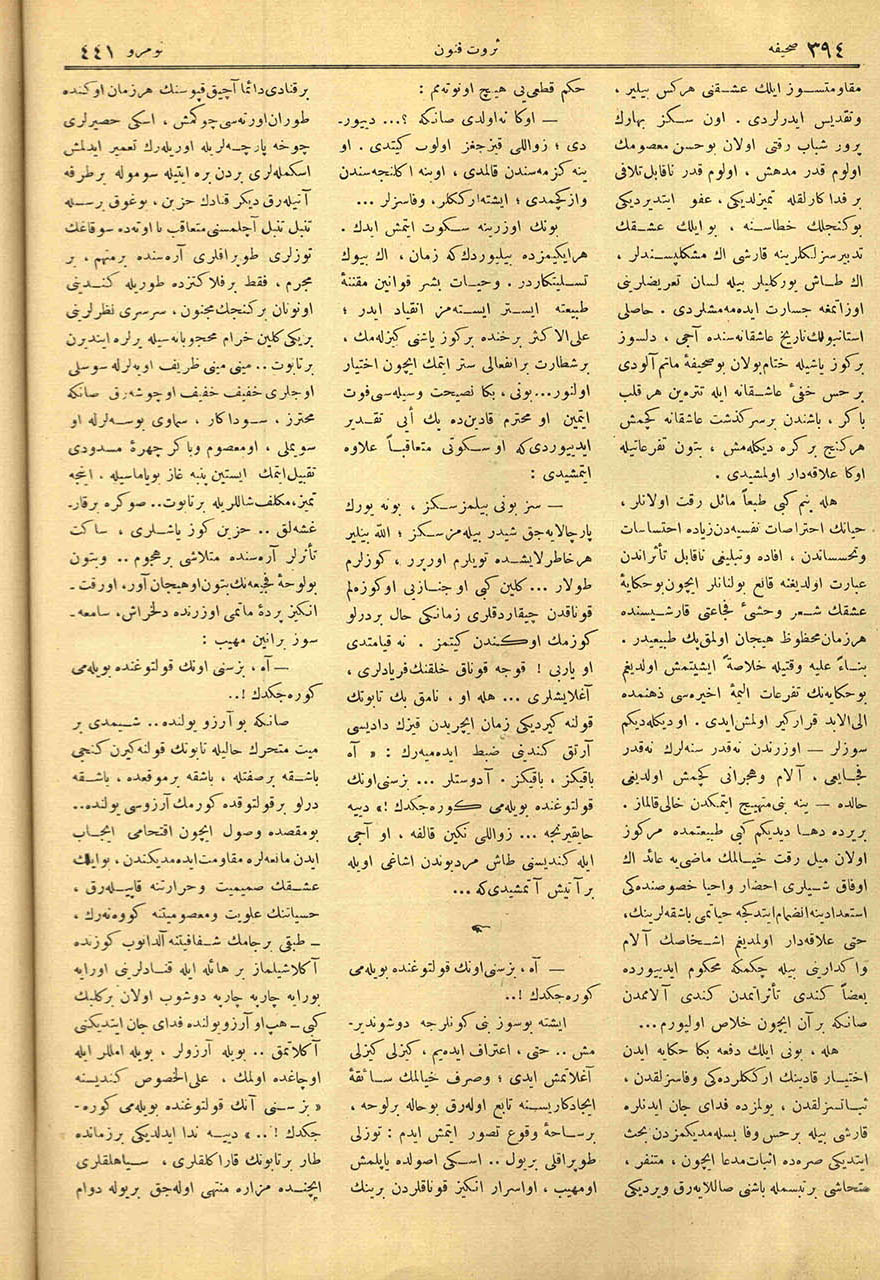 صحیفه ٣٩٤
ثروت فنون
نومرو ٤٤١
مقاومتسوز ایلك عشقنی هركس بیلیر ،
وتقدیس ایدرلردی . اون سكز بهارك
پرور شباب رقتی اولان بوحسن معصومك
اولوم قدر مدهش ، اولوم قدر ناقابل تلافی
برفداكارلقله تمیزلدیكی ، عفو ایتدیردیكی
بوكنجلك خطاسنه ، بو ایلك عشقك
تدبیرسزلكلرینه قارشی اك مشكلپسندلر ،
اك طاش یوركلیلر بیله لسان تعریضلرینی
اوزاتمغه جسارت ایده مه مشلردی . حاصلی
استانبولك تاریخ عاشقانه سنده آجی ، دلسوز
بركوز یاشیله ختام بولان بوصحیفهٔ ماتم آلودی
برحس خفیٔ عاشقانه ایله تتره ین هر قلب
باكر ، باشندن برسركذشت عاشقانه كچمش
هركنج بركره دیكله مش ، بتون تفرعاتیله
اوكا علاقه دار اولمشیدی .
هله بنم كبی طبعاً مائل رقت اولانلر ،
حیاتك احتراصات نفسیه دن زیاده احتساسات
وتحسساتدن ، افاده وتبلیغی ناقابل تأثراتدن
عبارت اولدیغنه قانع بولنانلر ایچون بوحكایهٔ
عشقك شعر وحشیٔ فجاعتی قارشیسنده
هرزمان محظوظ هیجان اولمق پك طبیعیدر .
بناءً علیه وقتیله خلاصةً ایشیتمش اولدیغم
بوحكایه نك تفرعات الیمهٔ اخیره سی ذهنمده
الی الابد قراركیر اولمش ایدی . او دیكله دیكم
سوزلر — اوزرندن نه قدر سنه لرك نه قدر
فجایعی ، آلام وهجرانی كچمش اولدیغی
حالده — ینه بنی متهیج ایتمكدن خالی قالماز .
بریرده دها دیدیكم كبی طبیعتمده مركوز
اولان میل رقت خیالمك ماضی یه عائد اك
اوفاق شیلری احضار واحیا خصوصنده كی
استعدادینه انضمام ایتدكجه حیاتمی باشقه لرینك،
حتی علاقه دار اولمدیغم اشخاصك آلام
واكدارینی بیله چكمكه محكوم ایدییورده
بعضاً كندی تأثراتمدن كندی آلامدن
صانكه برآن ایچون خلاص اولیورم...
هله ، بونی ایلك دفعه بكا حكایه ایدن
اختیار قادینك ارككلرده كی وفاسزلقدن ،
ثباتسزلقدن ، یولمزده فدای جان ایدنلره
قارشی بیله برحس وفا بسله مدیكمزدن بحث
ایتدیكی صره ده اثبات مدعا ایچون ، متنفر ،
متحاشی برتبسمله باشنی صاللایه رق ویردیكی
حكم قطعی یی هیچ اونوته مم :
— اوكا نه اولدی صانكه ؟... دییور-
دی ؛ زواللی قیزجغز اولوب كیتدی . او
ینه كزمه سندن قالمدی ، اوینه اكلنجه سندن
وازكچمدی ؛ ایشته ارككلر ، وفاسزلر ...
بونك اوزرینه سكوت ایتمش ایدك .
هرایكیمزده بیلیوردك كه زمان ، اك بیوك
تسلیتكاردر . وحیات بشر قوانین مقننهٔ
طبیعته ایستر ایسته مز انقیاد ایدر ؛
علی الاكثر برخنده بركوز یاشنی كیزله مك ،
برشطارت برانفعالی ستر ایتمك ایچون اختیار
اولنور... بونی ، بكا نصیحت وسیله سی فوت
ایتمین او محترم قادین ده پك ایی تقدیر
ایدییوردی كه او سكوتی متعاقباً علاوه
ایتمشیدی :
— سز بونی بیلمزسكز ، بونه یورك
پارچالایه جق شیدر بیله مزسكز ؛ الله بیلیر
هرخاطرلایشده تویلرم اوریرر ، كوزلرم
طولار ... كلین كبی او جنازه یی او كوزه لم
قوناقدن چیقاردقلری زمانكی حال بردرلو
كوزمك اوكندن كیتمز . نه قیامتدی
او یاربی ! قوجه قوناق خلقنك فریادلری ،
آغلایشلری ... هله او ، نامق بك تابوتك
قولنه كیردیكی زمان ایچریدن قیزك دادیسی
آرتق كندینی ضبط ایده میه رك : « آه
باقیكز ، باقیكز . آ دوستلر ... بزسنی اونك
قولتوغنده بویله می كوره جكدك !» دییه
حایقیرنجه ... زواللی نكین قالفه ، او آجی
ایله كندیسنی طاش مردیوندن اشاغی اویله
برآتیش آتمشیدی كه ...
— آه ، بزسنی اونك قولتوغنده بویله می
كوره جكدك !..
ایشته بوسوز بنی كونلرجه دوشوندیر-
مش .. حتی ، اعتراف ایده یم ، كیزلی كیزلی
آغلاتمش ایدی ؛ وصرف خیالمك سائقهٔ
ایجادكاریسنه تابع اوله رق بوحاله برلوحه ،
برساحهٔ وقوع تصور ایتمش ایدم : توزلی
طوپراقلی بریول .. اسكی اصولده یاپلمش
اومهیب ، اواسرار انكیز قوناقلردن برینك
برقنادی دائما آچیق قپوسنك هرزمان اوكنده
طوران اورته سی چوكمش ، اسكی حصیرلری
چوخه پارچه لریله اوریله رك تعمیر ایدلمش
اسكمله لری بردن بره ایتیله سوموله برطرفه
آتیله رق دیكر قنادك حزین ، بوغوق برسسله
تنبل تنبل آچلمسنی متعاقب تا اوته ده سوقاغك
توزلری طوپراقلری آره سنده برمتهم ، بر
مجرم ، فقط برفلاكتزده طوریله كندینی
اونوتان بركنجك مجنون ، سرسری نظرلرینی
بریكی كلین خرام محجوبانه سیله یرلره ایندیرن
برتابوت .. مینی مینی ظریف اویه لرله سوسلی
اوجلری خفیف خفیف اوچوشه رق صانكه
محترز ، سوداكار ، سماوی بوسه لرله او
سویملی ، اومعصوم وباكر چهرهٔ مسدودی
تقبیل ایتمك ایستین پنبه غاز بویاماسیله . اینجه
تمیز، مكلف شاللریله برتابوت .. صوكره برقار-
غشه لق .. حزین كوز یاشلری ، ساكت
تأثرلر آره سنده متلاشی برهجوم .. وبتون
بولوحهٔ فجیعه نك بتون اوهیجان آور، اورقت-
انكیز پردهٔ ماتمی اوزرنده دلخراش، سامعه -
سوز برانین مهیب :
— آه ، بزسنی اونك قولتوغنده بویله می
كوره جكدك !..
صانكه بو آرزو یولنده .. شیمدی بر
میت متحرك حالیله تابوتك قولنه كیرن كنجی
باشقه برصفتله ، باشقه برموقعده ، باشقه
درلو برقولتوقده كورمك آرزوسی یولنده...
بومقصده وصول ایچون اقتحامی ایجاب
ایدن مانعه لره مقاومت ایده مدیكندن ، بوایلك
عشقك صمیمیت وحرارتنه قاپیله رق ،
حسیاتنك علویت ومعصومیتنه كووه نه رك ،
ـ طبقی برجامك شفافیتنه آلدانوب كوزنده
آكلاشیلماز بر هائله ایله قنادلرینی اورایه
بورایه چارپه چارپه دوشوب اولان بركلبك
كبی ـ هپ او آرزو یولنده فدای جان ایتدیكنی
آكلاتمق .. بویله آرزولر ، بویله امللر ایله
اوچاغده اولمك ، علی الخصوص كندیسنه
« بزسنی آنك قولتوغنده بویله می كوره-
جكدك !..» دییه ندا ایدلدیكی برزمانده
طار برتابوتك قاراكلقلری ، سیاهلقلری
ایچنده مزاره منتهی اوله جق بریوله دوام